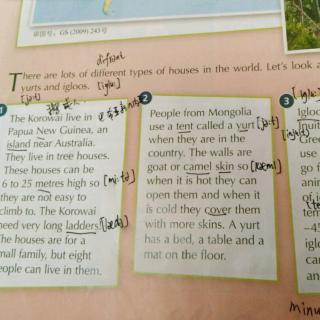 审图号: GS (2009) 243号
There are lots of different types of houses in the world. Let's look a
yurts and igloos.
1
The Korowai live in
Papua New Guinea, an
island near Australia.
They live in tree houses.
These houses can be
6 to 25 metres high so
they are not easy to
climb to. The Korowai
need very long ladders.
The houses are for a
small family, but eight
people can live in them.
2
People from Mongolia
use a tent called a yurt
when they are in the
country. The walls are
goat or camel skin so
when it is hot they can
open them and when it
is cold they cover them
with more skins. A yurt
has a bed, a table and a
mat on the floor.
3
Igloo
Inuit
Gree
use
go f
anin
of i
tem
-45
iglo
can
an
minu